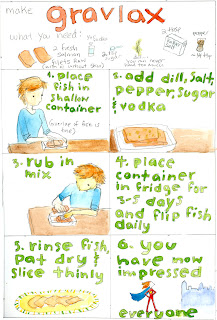 make gravlax
what you need:
2 fresh
salmon
filets
vodka
you can never
have too much
salt
pepper
1. place
fish in
shallow
container
2. add dill, salt,
pepper, sugar
+ vodka
3. rub in
mix
4. place
container
in fridge for
3-5 days
and flip fish
daily
5. rinse fish,
pat dry &
slice thinly
6. you
have now
impressed
everyone